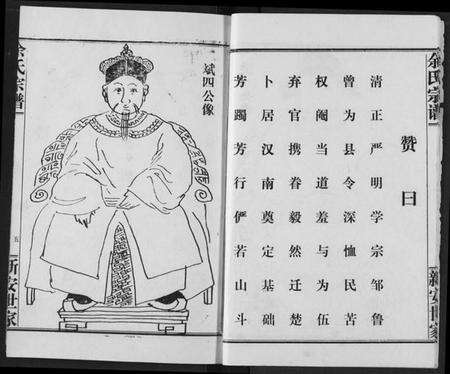 余氏宗谱
赞曰
清正严明学宗邹鲁
曾为县令深恤民苦
权阉当道羞与为伍
弃官携眷毅然迁楚
卜居汉南奠定基础
芳躅芳行俨若山斗
新安世家
斌四公像
余氏宗谱
五
新安世家